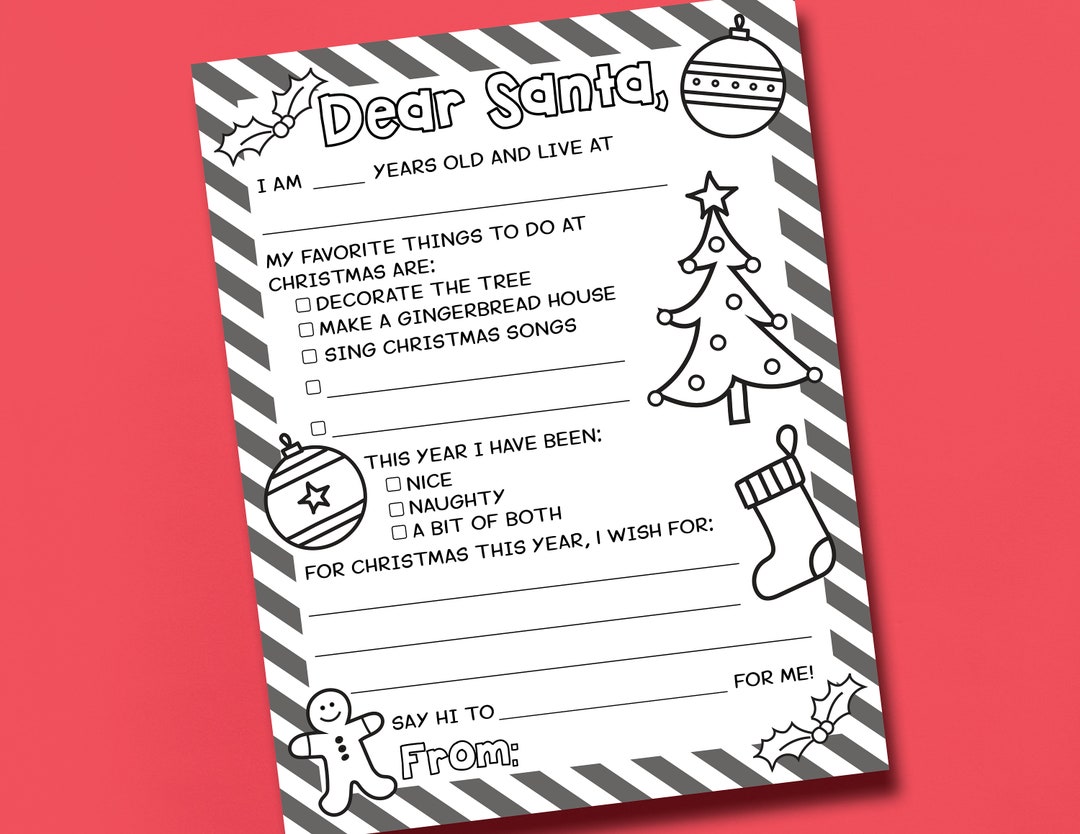 Dear Santa,
I AM ____ YEARS OLD AND LIVE AT
MY FAVORITE THINGS TO DO AT
CHRISTMAS ARE:
DECORATE THE TREE
MAKE A GINGERBREAD HOUSE
SING CHRISTMAS SONGS
THIS YEAR I HAVE BEEN:
NICE
NAUGHTY
A BIT OF BOTH
FOR CHRISTMAS THIS YEAR, I WISH FOR:
SAY HI TO ____ FOR ME!
From: